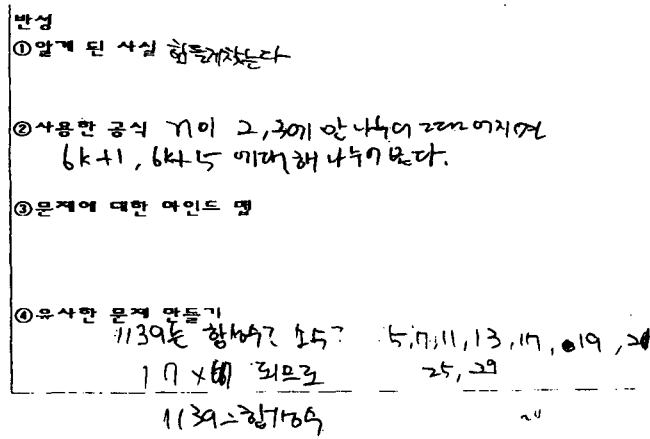 반성
①알게 된 사실 힘들게찾는다
②사용한 공식 n이 2, 3에 안 나누어 떨어지면
6k+1, 6k+5 에대해 나누어 본다.
③문제에 대한 마인드 맵
④유사한 문제 만들기
1139는 합성수? 소수? 5, 7, 11, 13, 17, 19,
17 x 67 되므로 25, 29
1139는합성수